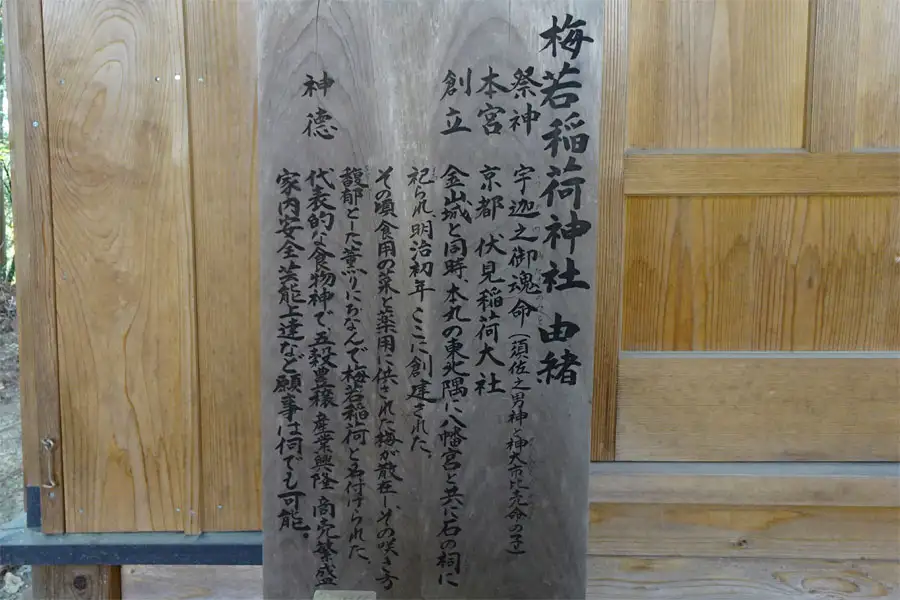 梅若稲荷神社 由緒
祭神 宇迦之御魂命（須佐之男神と神大市比売命の子）
本宮 京都 伏見稲荷大社
創立 金山城と同時、本丸の東北隅に八幡宮と共に石の祠に
祀られ明治初年ここに創建された。
その頃食用の菜と薬用に供された梅が散在し、その咲き方
馥郁とした薫りにちなんで梅若稲荷と名付けられた、
神徳 代表的な食物神で、五穀豊穣 産業興隆 商売繁盛
家内安全 芸能上達など願事は何でも可能。